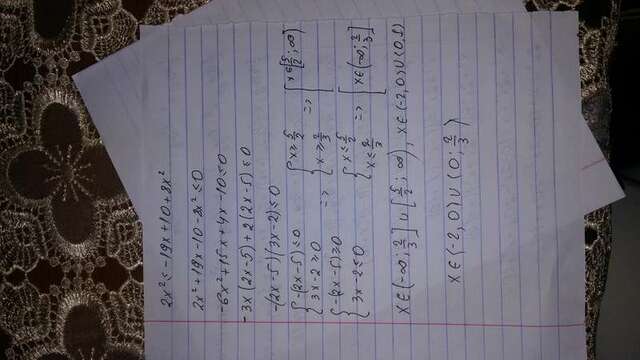 2x² ≤ -19x + 10 + 8x²
2x² + 19x - 10 - 8x² ≤ 0
-6x² + 15x + 4x - 10 ≤ 0
-3x(2x-5) + 2(2x-5) ≤ 0
-(2x-5)(3x-2) ≤ 0
{ -(2x-5) ≤ 0 { x ≥ 5/2 => [ x ∈ [5/2; ∞)
{ 3x-2 ≥ 0 => { x ≥ 2/3
{ -(2x-5) ≥ 0 { x ≤ 5/2 => [ x ∈ (-∞; 2/3]
{ 3x-2 ≤ 0 { x ≤ 2/3
x ∈ (-∞; 2/3] ∪ [5/2; ∞), x ∈ (-2, 0) ∪ (0, 1)
x ∈ (-2, 0) ∪ (0; 2/3)